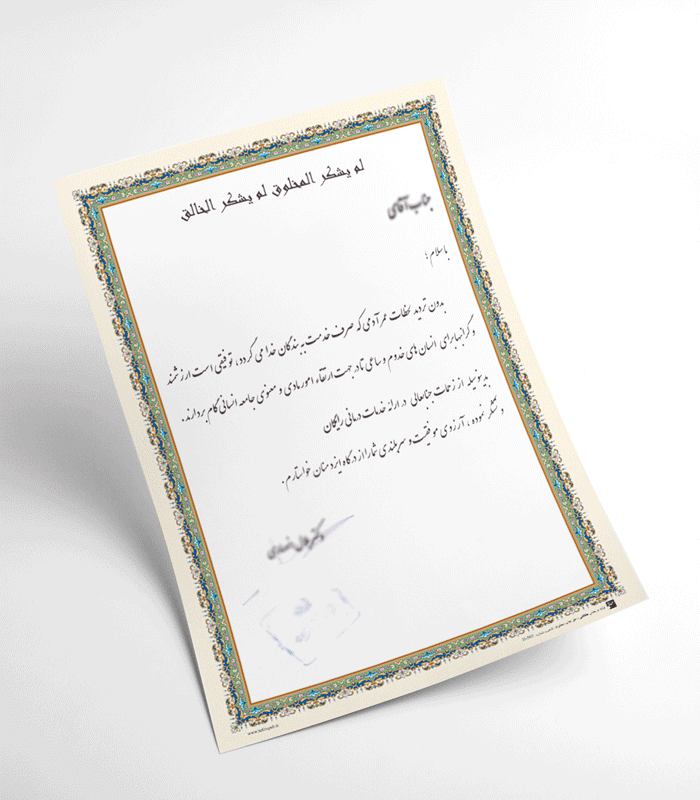 لم یشکر المخلوق لم یشکر الخالق
جناب آقای
با سلام ؛
بدون تردید لحظات عمر آدمی که صرف خدمت به بندگان خدا می گردد، توفیقی است ارزشمند
و گرانبها برای انسان های خدوم و ساعی تا در جهت ارتقاء امور مادی و معنوی جامعه انسانی گام بردارند.
بدینوسیله از زحمات جنابعالی در ارائه خدمات درمانی رایگان
و تشکر نموده ، آرزوی موفقیت و سربلندی شما را از درگاه ایزد منان خواستارم .
دکتر